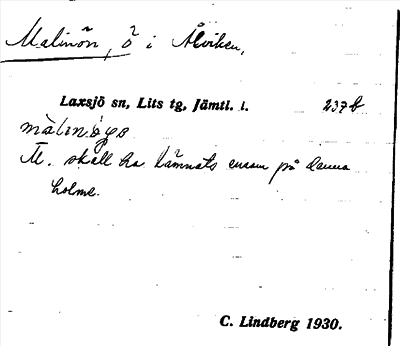 Malinön, ö i Åviken,
Laxsjö sn, Lits tg, Jämtl. l. 237b
M. skall ha lämnats ensam på denna
holme.
C. Lindberg 1930.